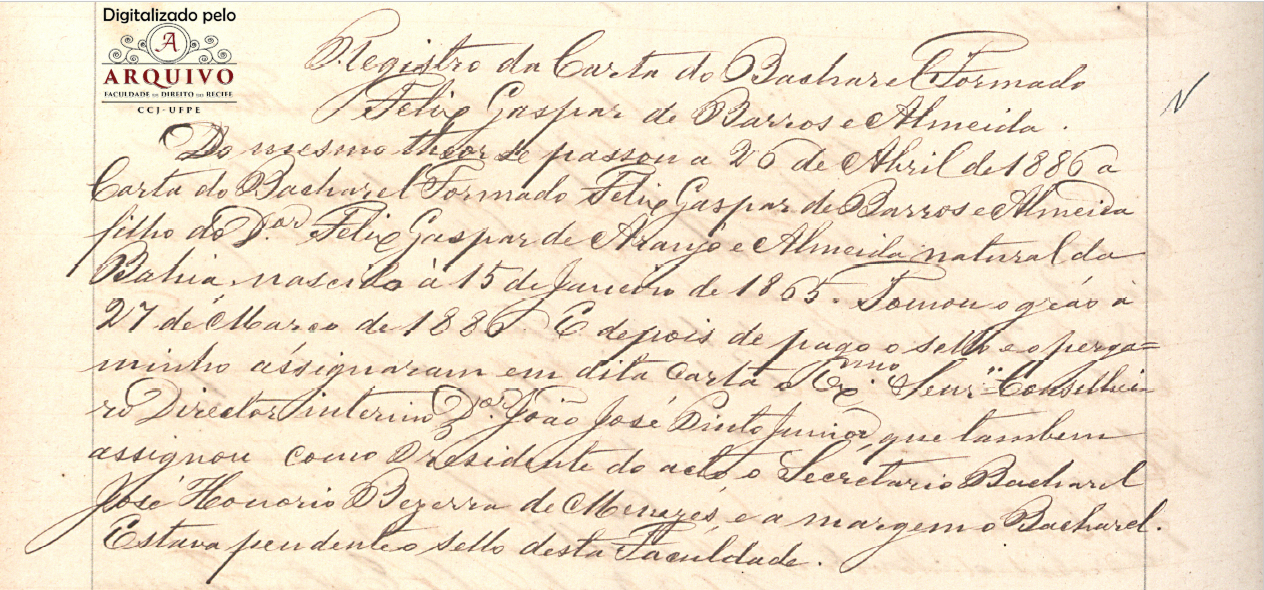 Digitalizado pelo
A
ARQUIVO
FACULDADE DE DIREITO DO RECIFE
CCJ-UFPE
Registro da Carta do Bacharel Formado
Felix Gaspar de Barros e Almeida.
N
Do mesmo theor se passou a 26 de Abril de 1886 a
Carta do Bacharel Formado Felix Gaspar de Barros e Almeida
filho do D.or Felix Gaspar de Araujo e Almeida natural da
Bahia, nascido à 15 de Janeiro de 1865. Tomou o gráo à
27 de Março de 1886. E depois de pago o sello e o perga=
minho assignaram em dita carta o Ex.mo Senr. Conselhei
ro Director interino D.or João José Pinto Junior, que tambem
assignou como Presidente do acto o Secretario Bacharel
José Honorio Bezerra de Menezes, e a margem o Bacharel.
Estava pendente o sello desta Faculdade.